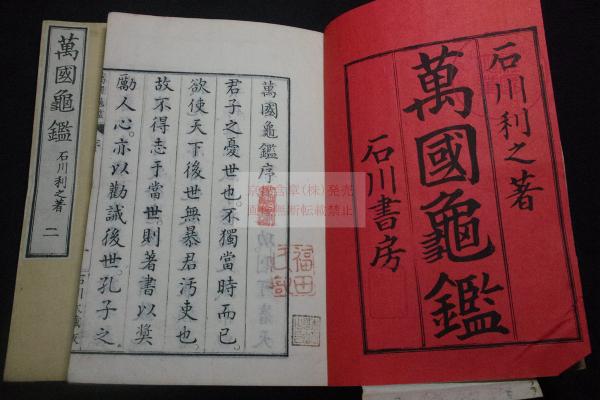 石川利之著
萬國龜鑑
石川書房
萬國龜鑑序
君子之憂世也。不獨當時而已。
欲使天下後世無暴君汚吏也
故不得志于當世。則著書以奬
勵人心。亦以勸誡後世。孔子之
萬國龜鑑
石川利之著
二
福田